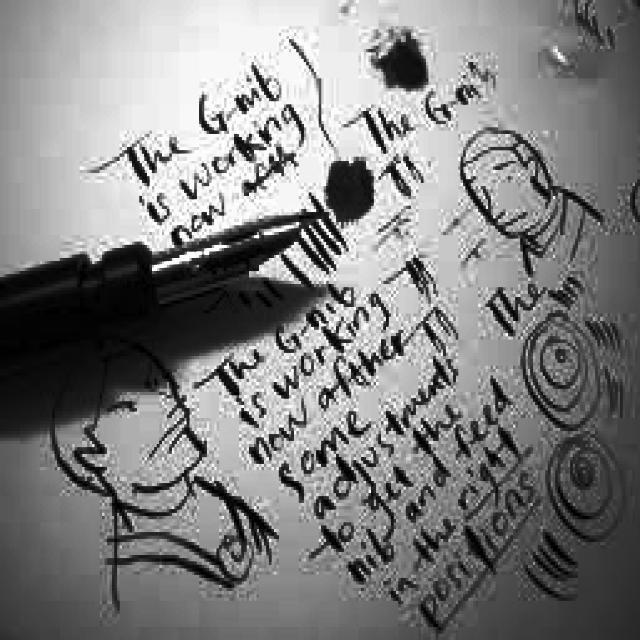 The G-nib
is working
now afth
The G-nib
Th
The
The G-nib
is working Th
now afther Th
some
adjustments
to get the
nib and feed
in the right
positions